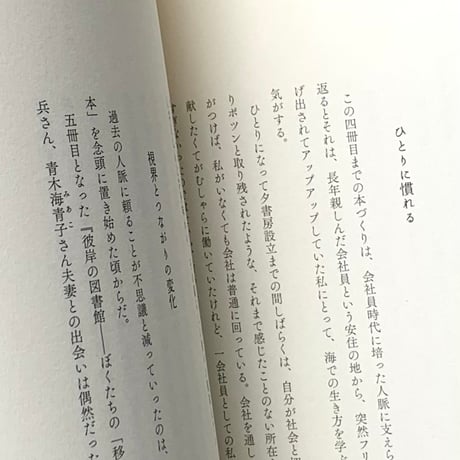 ひとりに慣れる
この四冊目までの本づくりは、会社員時代に培った人脈に支えら
返るとそれは、長年親しんだ会社員という安住の地から、突然フリ
げ出されてアップアップしていた私にとって、海での生き方を学
気がする。
ひとりになって夕書房設立までの間しばらくは、自分が社会と
りポツンと取り残されたような、それまで感じたことのない所在
がつけば、私がいなくても会社は普通に回っている。会社を通し
献したくてがむしゃらに働いていたけれど、一会社員としての私
視界とつながりの変化
過去の人脈に頼ることが不思議と減っていったのは、
本」を念頭に置き始めた頃からだ。
五冊目となった『彼岸の図書館――ぼくたちの「移
兵さん、青木海青子さん夫妻との出会いは偶然だっ
みあこ